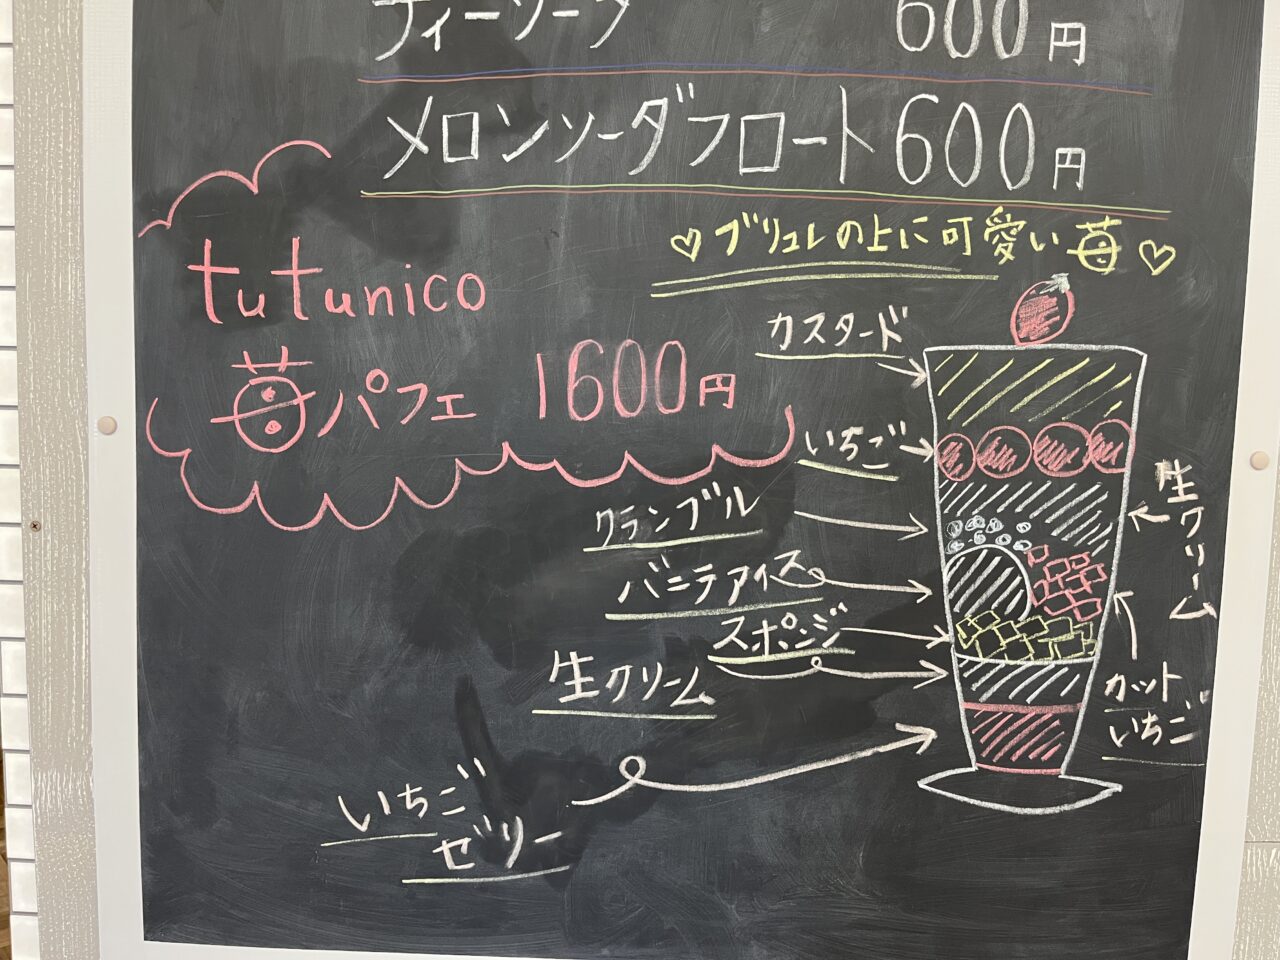 ティーソーダ 600円
メロンソーダフロート 600円
♡ブリュレの上に可愛い苺♡
tutunico
苺パフェ 1600円
カスタード
いちご
生クリーム
クランブル
バニラアイス
スポンジ
生クリーム
カット
いちご
いちご
ゼリー